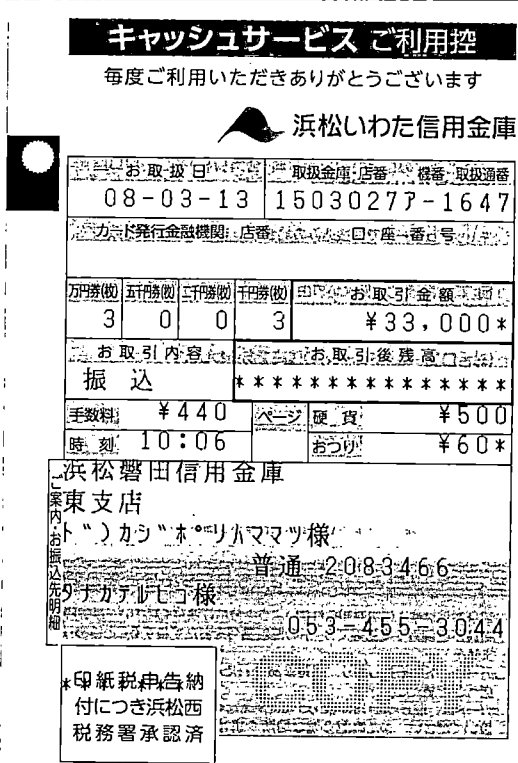 キャッシュサービス ご利用控
毎度ご利用いただきありがとうございます
浜松いわた信用金庫
お取扱日 取扱金庫・店番 機番 取扱通番
08-03-13 1503027ア-1647
カード発行金融機関 店番 口座番号
万円券(枚) 五千円券(枚) 二千円券(枚) 千円券(枚) お取引金額
3 0 0 3 ¥33,000*
お取引内容 お取引後残高
振込 ***************
手数料 ¥440 ページ 硬貨 ¥500
時刻 10:06 おつり ¥60*
ご案内・お振込先明細
浜松磐田信用金庫
東支店
ト゛)カシ゛ホ゜リハママツ様
普通 2083466
タナカテルヒコ様
053-455-3044
COPY
*印紙税申告納
付につき浜松西
税務署承認済